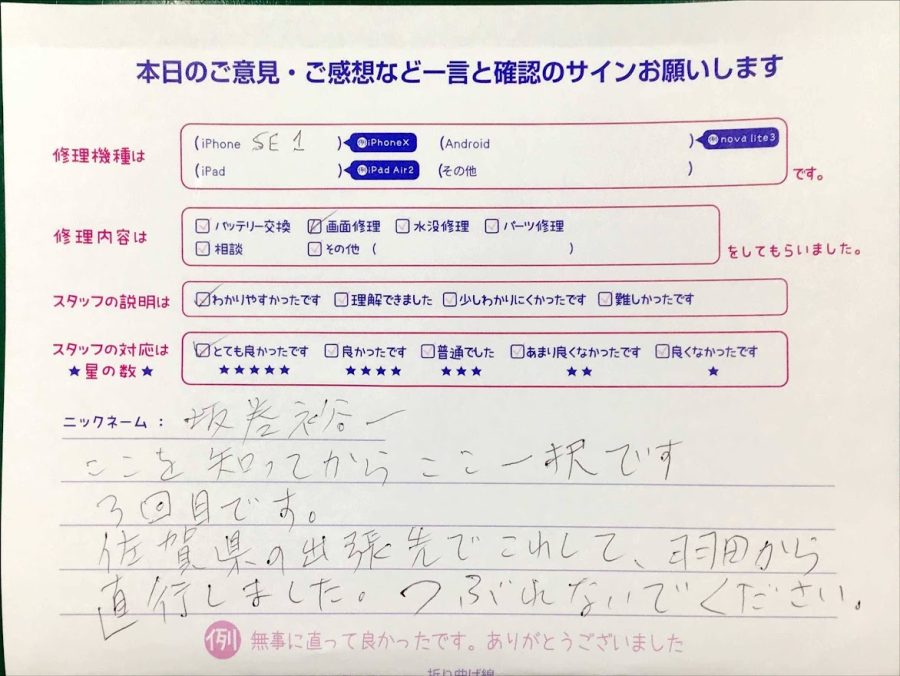 本日のご意見・ご感想など一言と確認のサインお願いします
修理機種は
(iPhone SE 1 ) iPhoneX (Android ) nova lite3
(iPad ) iPad Air2 (その他 ) です。
修理内容は
バッテリー交換 画面修理 水没修理 パーツ修理
相談 その他 ( ) をしてもらいました。
スタッフの説明は わかりやすかったです 理解できました 少しわかりにくかったです 難しかったです
スタッフの対応は とても良かったです 良かったです 普通でした あまり良くなかったです 良くなかったです
★星の数★ ★★★★★ ★★★★ ★★★ ★★ ★
ニックネーム： 坂巻裕一
ここを知ってからここ一択です
3回目です。
佐賀県の出張先でこわして、羽田から
直行しました。つぶれないでください。
例 無事に直って良かったです。ありがとうございました
折り曲げ線